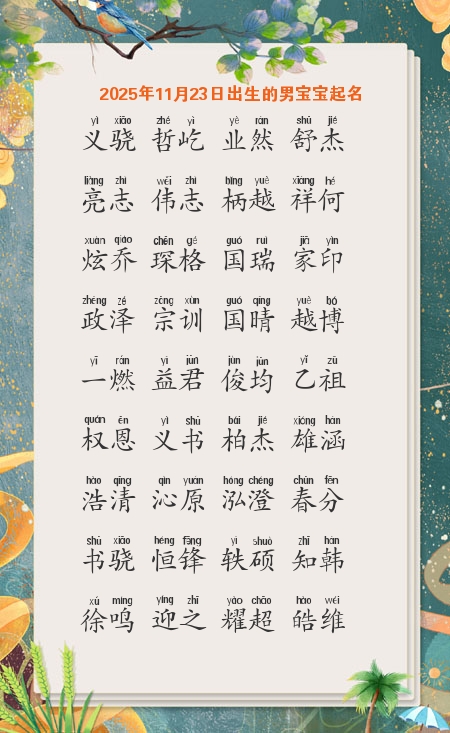 2025年11月23日出生的男宝宝起名
yì xiāo zhé yì yè rán shū jié
义骁 哲屹 业然 舒杰
liàng zhì wěi zhì bǐng yuè xiáng hé
亮志 伟志 柄越 祥何
xuàn qiáo chēn gé guó ruì jiā yìn
炫乔 琛格 国瑞 家印
zhèng zé zōng xùn guó qíng yuè bó
政泽 宗训 国晴 越博
yī rán yì jūn jùn jūn yǐ zǔ
一燃 益君 俊均 乙祖
quán ēn yì shū bái jié xióng hán
权恩 义书 柏杰 雄涵
hào qīng qìn yuán hóng chéng chūn fēn
浩清 沁原 泓澄 春分
shū xiāo héng fēng yì shuò zhī hán
书骁 恒锋 轶硕 知韩
xú míng yíng zhī yào chāo hào wéi
徐鸣 迎之 耀超 皓维